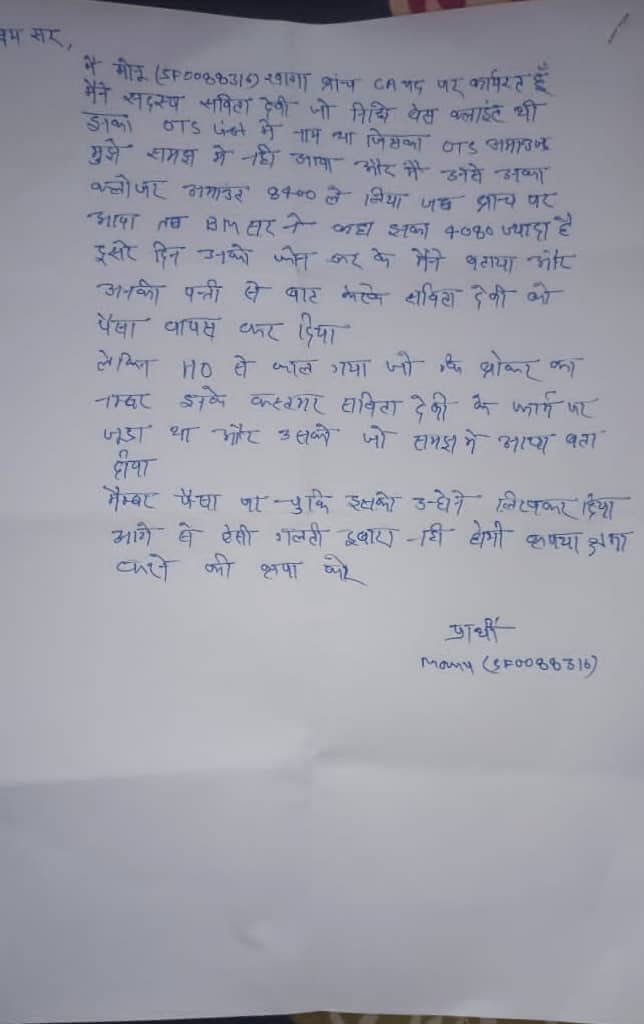 सर,
मैं मोनू (SF0088316) खागा ब्रांच CA पद पर कार्यरत हूँ
मैने सदस्य सविता देवी जो निधि वेस क्लाइंट थी
इनका OTS में नाम था जिसका OTS अमाउन्ट
मुझे समझ मे नही आया और मै उनसे उनका
क्लोजर अमाउंट 8400 ले लिया जब ब्रान्च पर
आया तब BM सर ने कहा इनका 4080 ज्यादा है
दुसरे दिन उनको फोन कर के मैने बताया और
उनकी पत्नी से बात करके सविता देवी को
पैसा वापस कर दिया
लेकिन HO से काल गया जो कि ब्रोकर का
नम्बर इनके कस्टमर सविता देवी के फार्म पर
जुडा था और उसको जो समझ मे आया बता
दीया
मेम्बर पैसा पा चुकि इसको उन्होने लिखकर दिया
आगे से ऐसी गलती दुबारा नही होगी कृपया क्षमा
करने की कृपा करे
प्रार्थी
Monu (SF0088316)